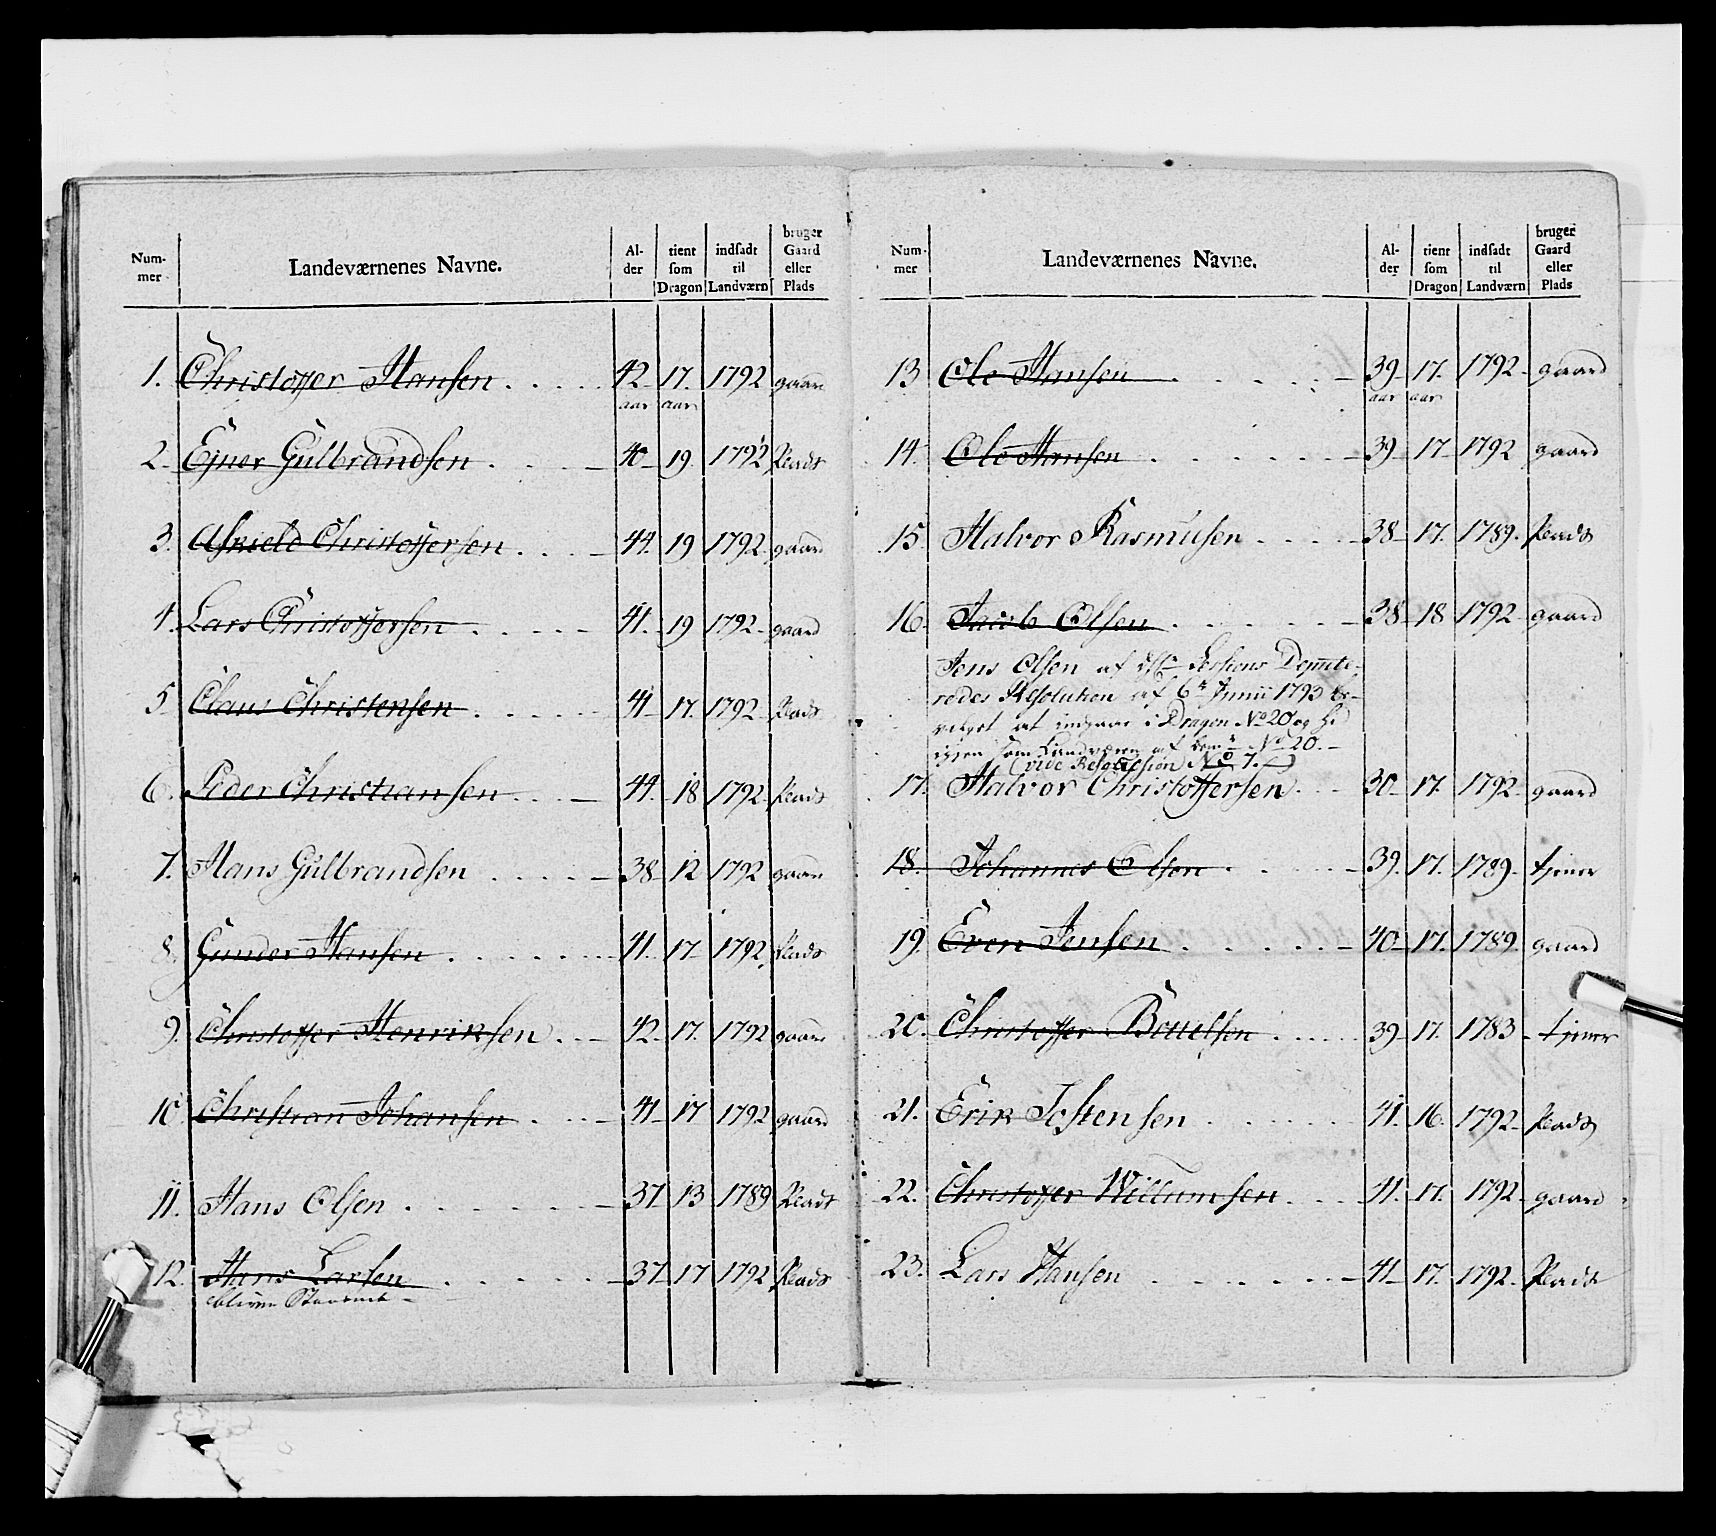 Num-
mer
Landeværnenes Navne.
Al-
der
tient
som
Dragon
indsadt
til
Landværn
bruger
Gaard
eller
Plads
1. Christoffer Hansen 42 aar 17. aar 1792 gaard
2. Ejner Gulbrandsen 40 19 1792 Plads
3. Askield Christoffersen 44. 19 1792 gaard
4. Lars Christoffersen 41. 19 1792 gaard
5 Claus Christensen 41 17. 1792 Plads
6. Peder Christiansen 44. 18 1792 Plads
7. Hans Gulbrandsen 38 12 1792 gaard
8. Gunder Hansen 41. 17 1792 Plads
9. Christoffer Henriksen 42 17. 1792 gaard
10 Christian Johansen 41 17 1792 gaard
11. Hans Olsen 37 13 1789 Plads
12. Hans Larsen 37 17 1792 Plads
bleven
Num-
mer
Landeværnenes Navne.
Al-
der
tient
som
Dragon
indsadt
til
Landværn
bruger
Gaard
eller
Plads
13 Ole Hansen 39 aar 17. aar 1792 gaard
14. Ole Hansen 39 17 1792 gaard
15. Halvor Rasmusen 38 17. 1789. Plads
16. Jacob Olsen 38 18 1792 gaard
Jens Olsen af Sessions Depute-
redes Resolution af 6te Junii 1793
at indgaae i Dragon No 20 og
igien som Landværn af No 20.
(vide Resolusion No 7.)
17. Halvor Christoffersen 30 17. 1792 gaard
18. Johannes Olsen 39. 17. 1789. tjener
19. Even Jensen 40 17. 1789 gaard
20. Christoffer Bottelsen 39 17. 1783 tjener
21. Erik Jostensen 41. 16. 1792 Plads
22. Christoffer Willumsen 41. 17. 1792 gaard
23. Lars Hansen 41 17. 1792 Plads